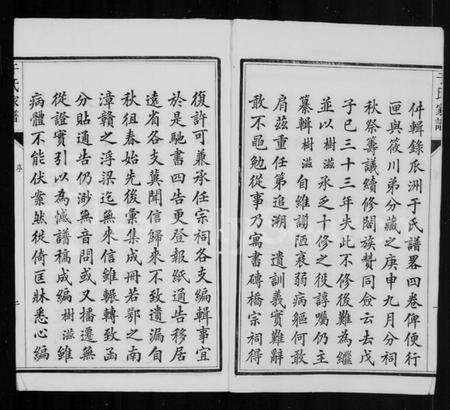 于氏家譜
件輯錄瓜洲于氏譜畧四卷俾便行
匣與筱川弟分藏之庚申九月分祠
秋祭籌議續修闔族贊同僉云去戊
子已三十三年失此不修後難為繼
並以樹滋承乏十修之役諄囑仍主
纂輯樹滋自維譾陋衰弱病軀何敢
肩茲重任第追溯 遺訓義實難辭
敢不黽勉從事乃寓書磚橋宗祠得
復許可兼承任宗祠各支編輯事宜
於是馳書四告更登報紙通告移居
遠省各支冀聞信歸來不致遺漏自
秋徂春始先後彙集成冊若鄂之南
漳贛之浮梁迄無來信雖輾轉致函
分貼通告仍渺無音問或又播遷無
從證實引以為憾譜稿成編樹滋雖
病體不能伏案然從倚匡牀悉心編
于氏家譜
序